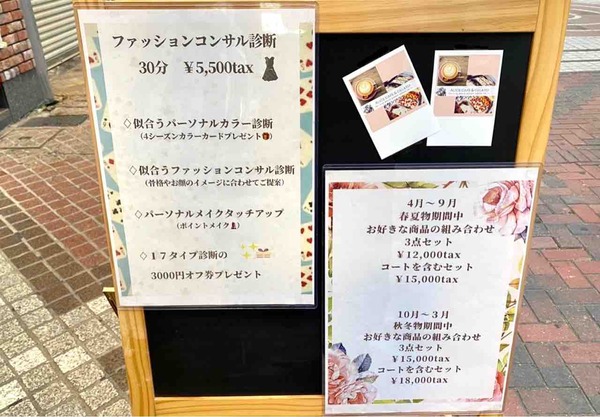 ファッションコンサル診断
30分 ¥5,500tax
◇似合うパーソナルカラー診断
(4シーズンカラーカードプレゼント🎁)
◇似合うファッションコンサル診断
(骨格やお顔のイメージに合わせてご提案)
◇パーソナルメイクタッチアップ
(ポイントメイク💄)
◇17タイプ診断の✨
3000円オフ券プレゼント
4月~9月
春夏物期間中
お好きな商品の組み合わせ
3点セット
¥12,000tax
コートを含むセット
¥15,000tax
10月~3月
秋冬物期間中
お好きな商品の組み合わせ
3点セット
¥15,000tax
コートを含むセット
¥18,000tax